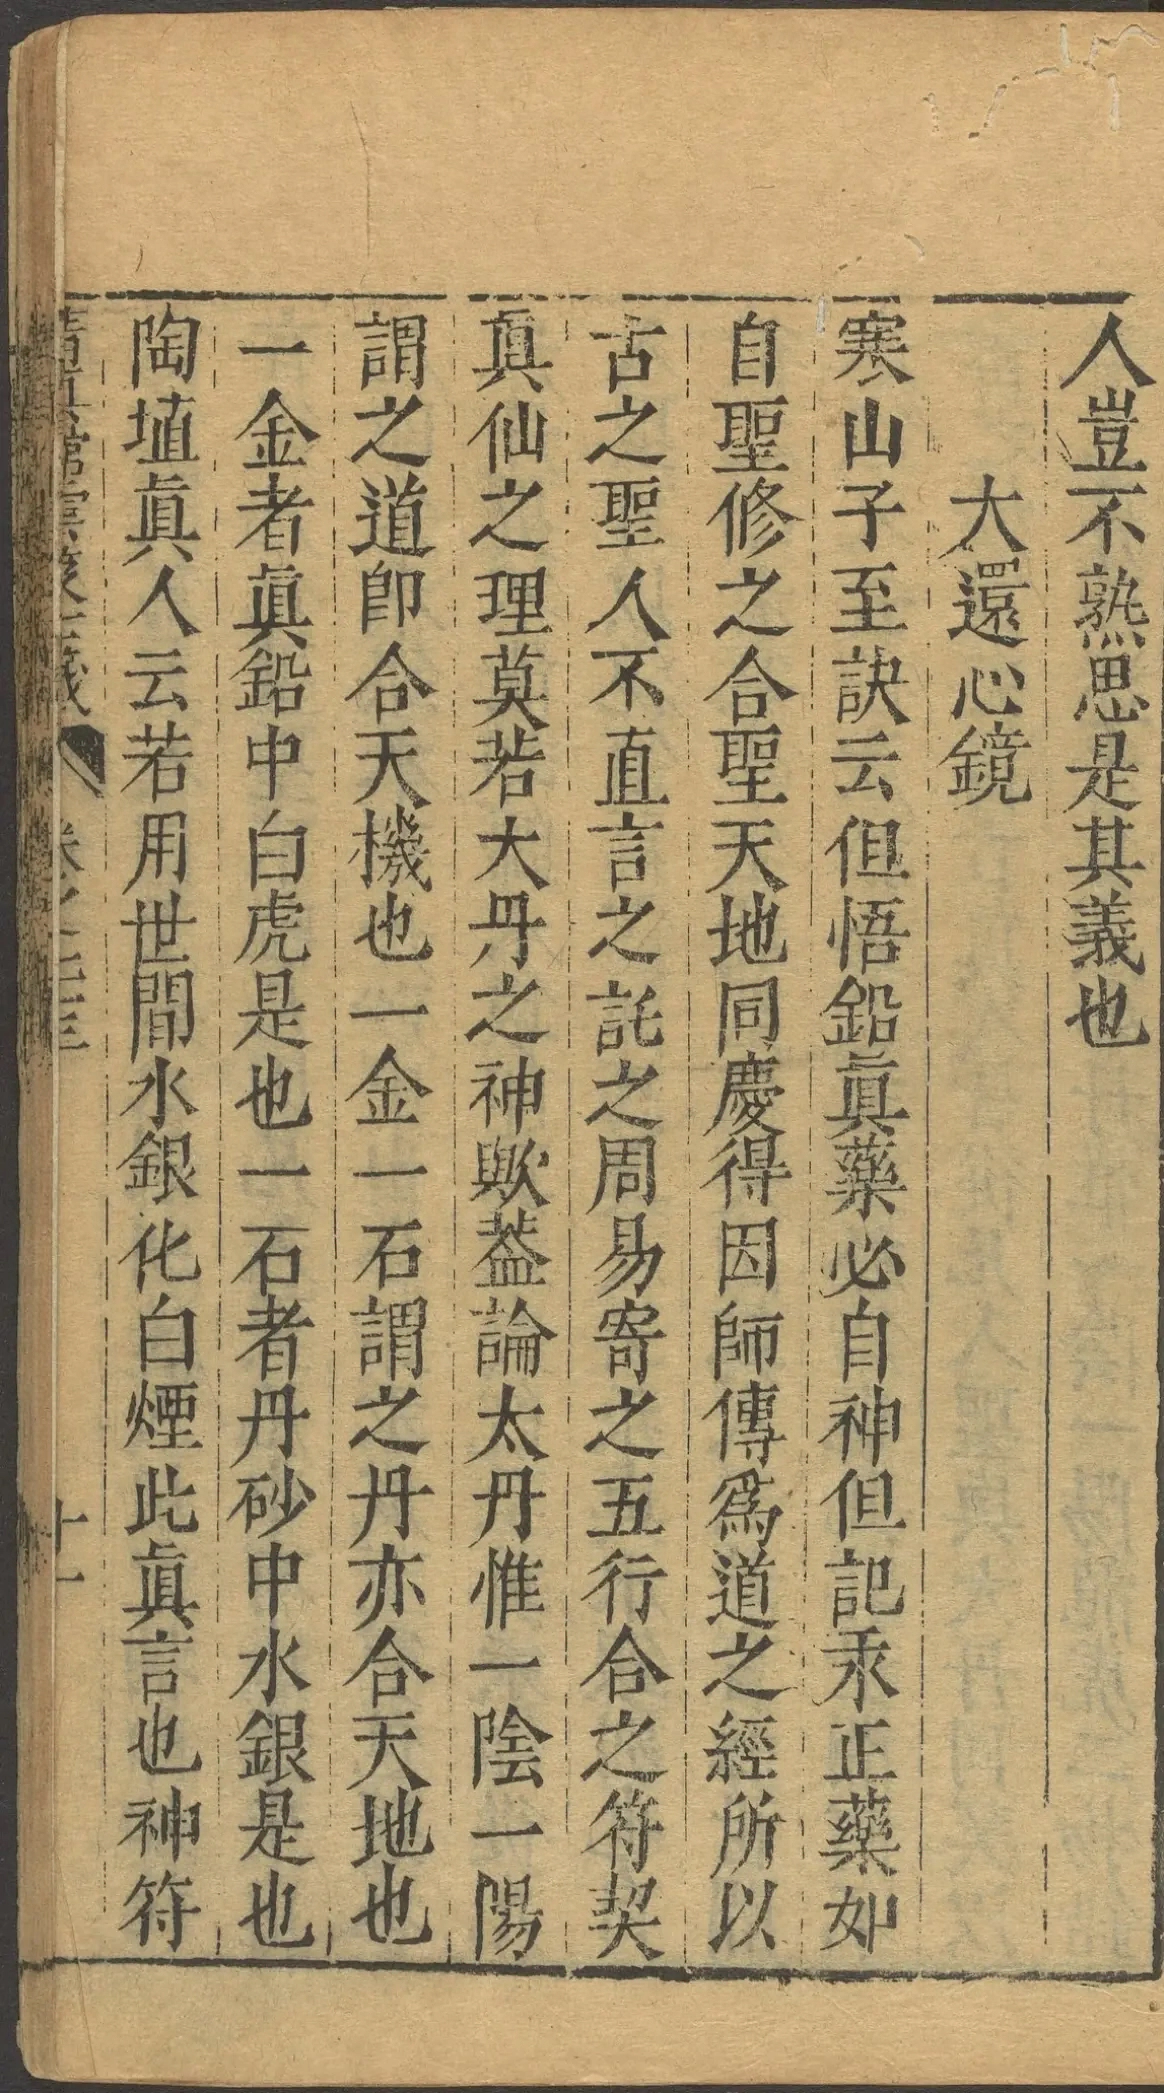 人豈不熟思是其義也
大還心鏡
寒山子至訣云但悟鉛眞藥必自神但記汞正藥如
自聖修之合聖天地同慶得因師傳爲道之經所以
古之聖人不直言之託之周易寄之五行合之符契
眞仙之理莫若大丹之神歟葢論太丹惟一陰一陽
謂之道卽合天機也一金一石謂之丹亦合天地也
一金者眞鉛中白虎是也一石者丹砂中水銀是也
陶埴眞人云若用世間水銀化白煙此眞言也神符
十一